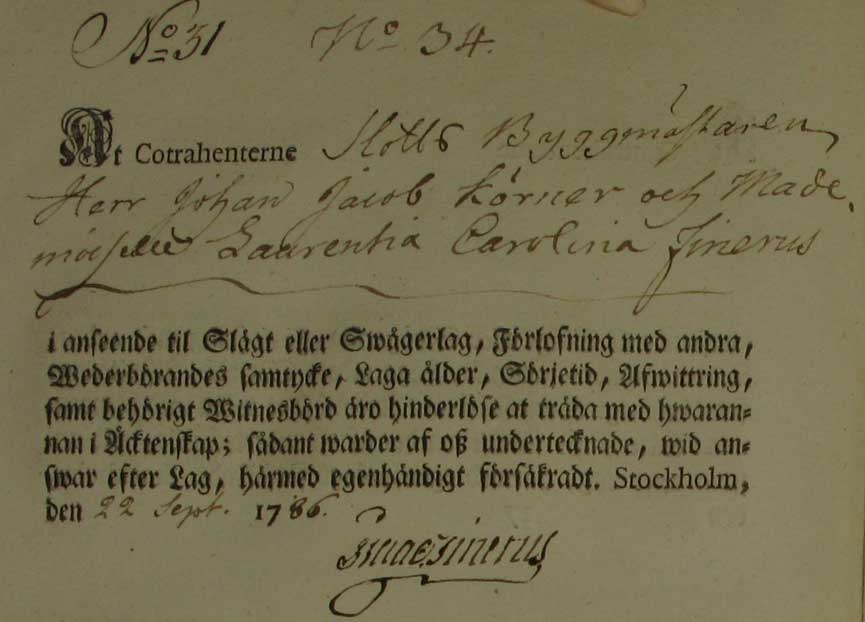 No 31 No 34.
At Cotrahenterne Slotts Byggmästaren
Herr Johan Jacob Körner och Made-
moiselle Laurentia Carolina Finerus
i anseende til Slägt eller Swågerlag, Förlofning med andra,
Wederbörandes samtycke, Laga ålder, Sörjetid, Afwittring,
samt behörigt Witnesbörd äro hinderlöse at träda med hwaran-
nan i Äcktenskap; sådant warder af oß undertecknade, wid an-
swar efter Lag, härmed egenhändigt försäkradt. Stockholm,
den 22 Sept. 1786.
Finerus